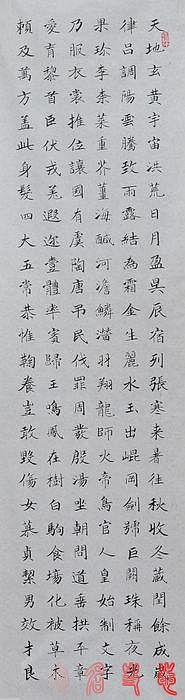 天地玄黃宇宙洪荒日月盈昃辰宿列張寒来暑往秋收冬藏閏餘成歲
律呂調陽雲騰致雨露結為霜金生麗水玉出崐岡劍號巨闕珠稱夜光
果珍李柰菜重芥薑海鹹河澹鱗潛羽翔龍師火帝鳥官人皇始制文字
乃服衣裳推位讓國有虞陶唐弔民伐罪周發殷湯坐朝問道垂拱平章
愛育黎首臣伏戎羌遐邇壹體率賓歸王鳴鳳在樹白駒食場化被草木
賴及萬方蓋此身髮四大五常恭惟鞠養豈敢毀傷女慕貞絜男效才良